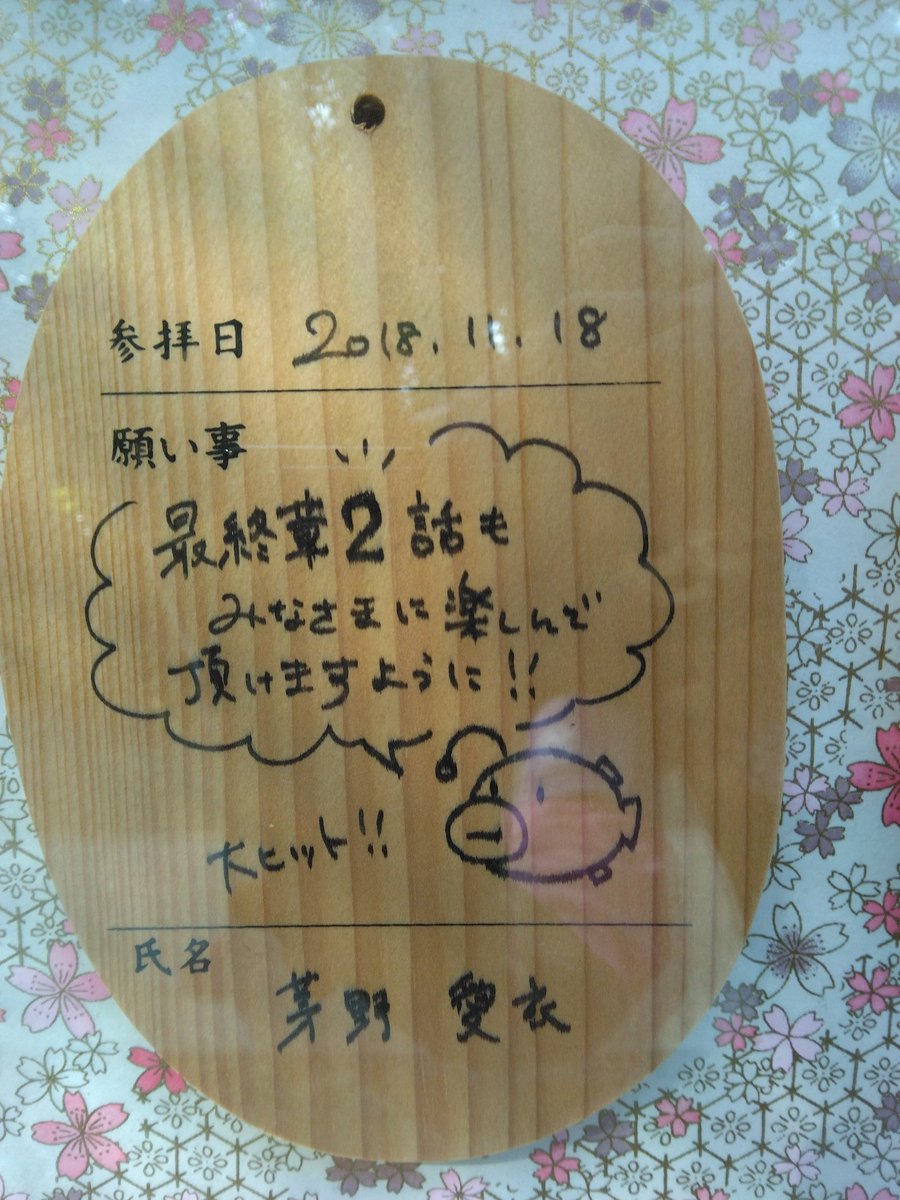 参拝日 2018.11.18
願い事
最終章2話も
みなさまに楽しんで
頂けますように!!
大ヒット!!
氏名
茅野 愛衣